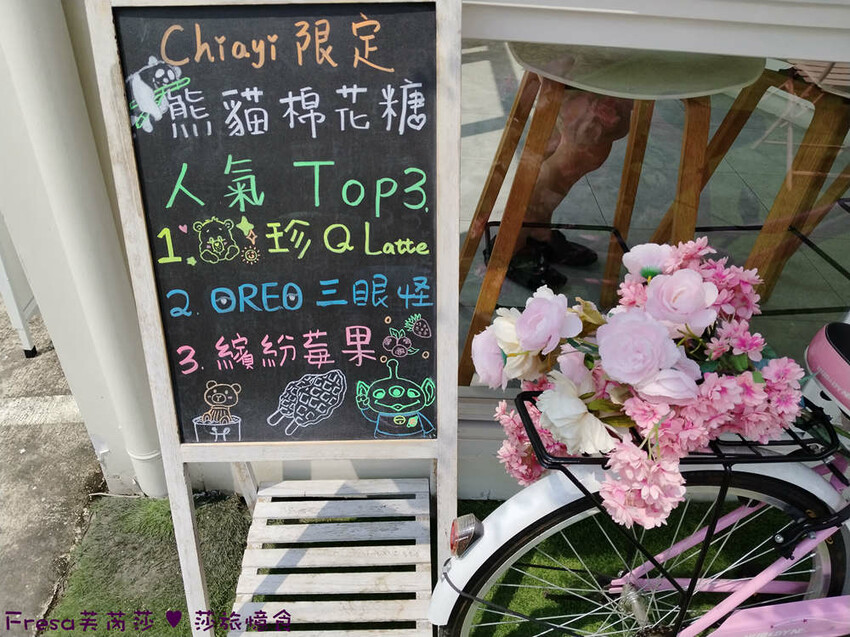 Chiayi 限定
熊貓棉花糖
人氣 Top3.
1. 珍Q Latte
2. OREO 三眼怪
3. 繽紛莓果
Fresa芙芮莎 ♥ 莎旅憶食